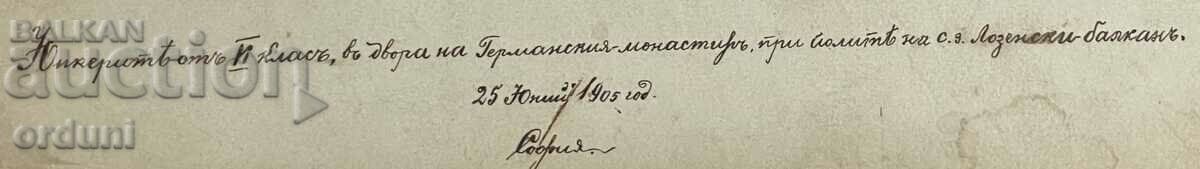 BALKAN
auction
orduni
Юнкеритѣ отъ VI класъ, въ двора на Германския-монастиръ, при политѣ на с. з. Лозенски-балканъ.
25 Юний 1905 год.
София.